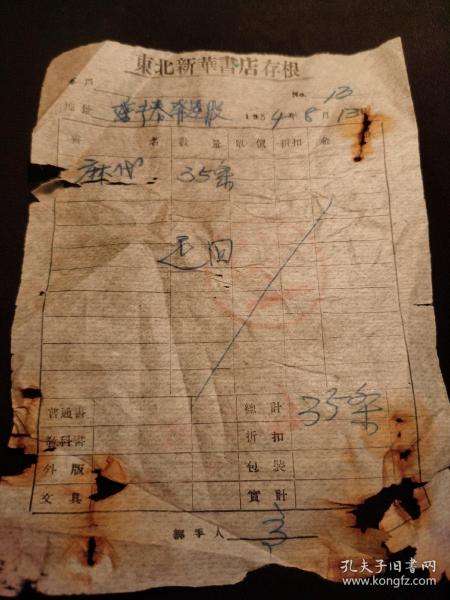 東北新華書店存根
客戶 No. 13
地址 發運股 1954年8月13日
書名 數量 單價 折扣 金
麻代 35条
退回
普通書 總計 35条
教科書 折扣
外版 包裝
文具 實計
經手人
孔夫子旧书网
www.kongfz.com